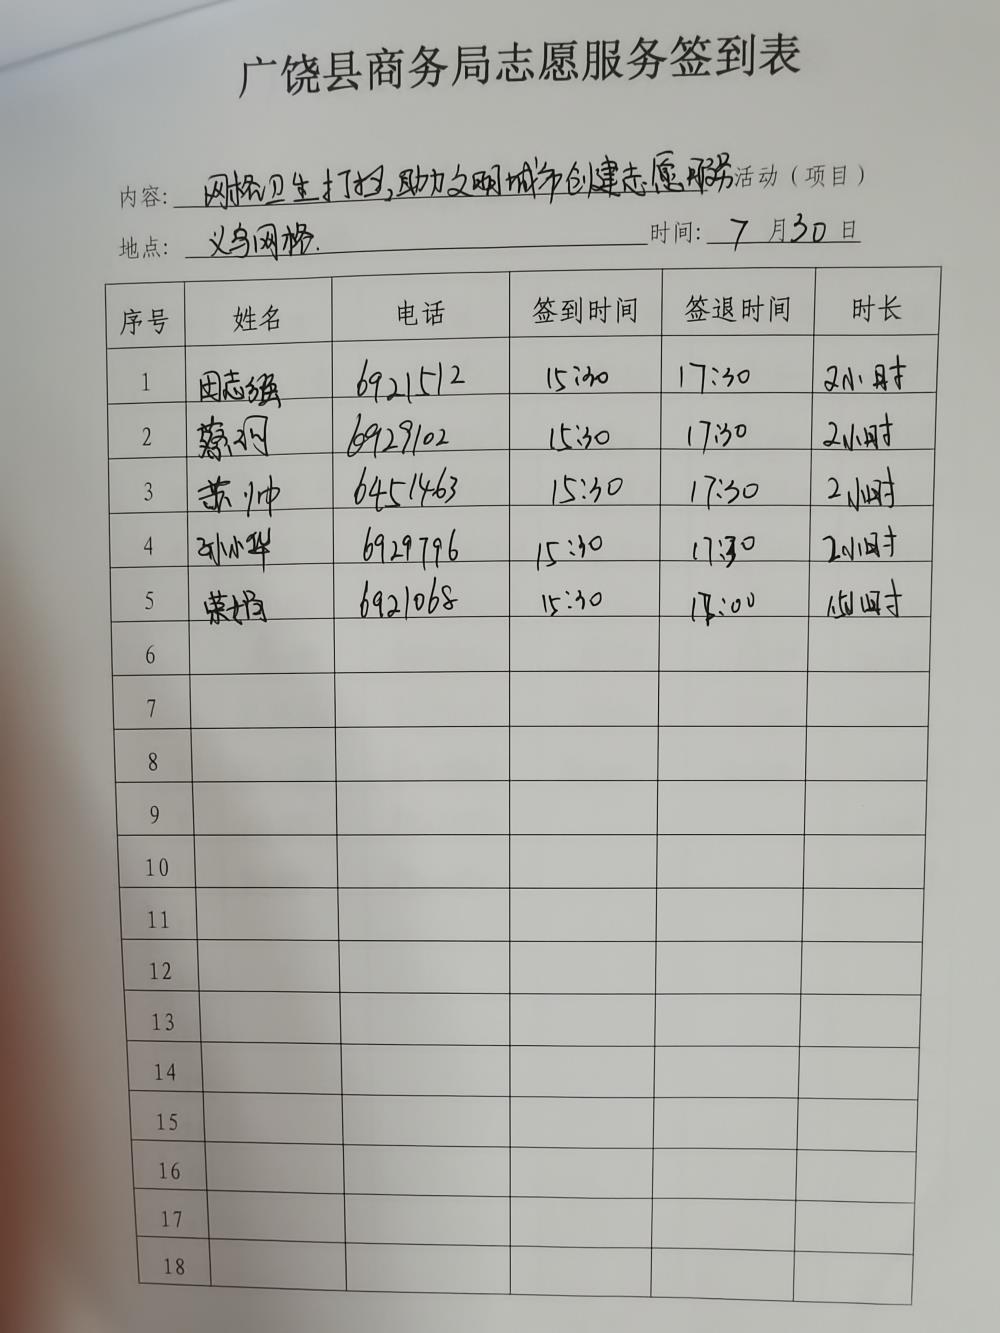 广饶县商务局志愿服务签到表
内容: 网格卫生打扫,助力文明城市创建志愿服务活动（项目）
地点: 义乌网格. 时间: 7 月 30 日
序号 姓名 电话 签到时间 签退时间 时长
1 田志强 6921512 15:30 17:30 2小时
2 蔡 6929102 15:30 17:30 2小时
3 苏帅 6451463 15:30 17:30 2小时
4 孙小华 6929796 15:30 17:30 2小时
5 荣娟 6921068 15:30 :00 小时
6
7
8
9
10
11
12
13
14
15
16
17
18